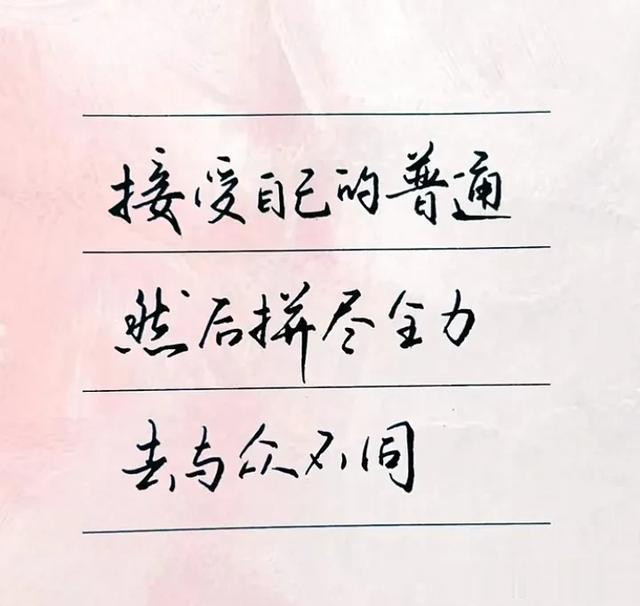 接受自己的普通
然后拼尽全力
去与众不同